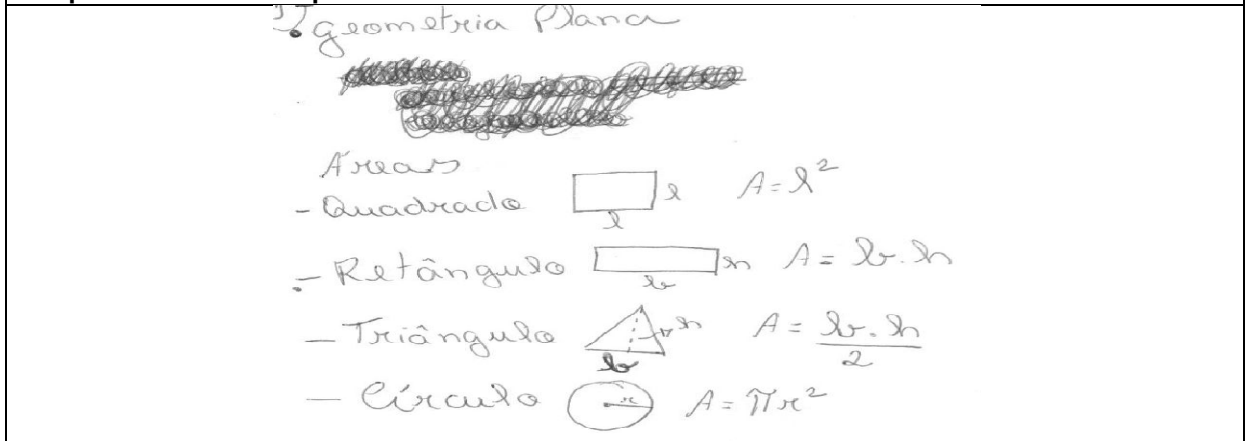 1) Geometria Plana
Áreas
- Quadrado l l A = l²
- Retângulo b h A = b.h
- Triângulo b h A = b.h/2
- Círculo r A = πr²